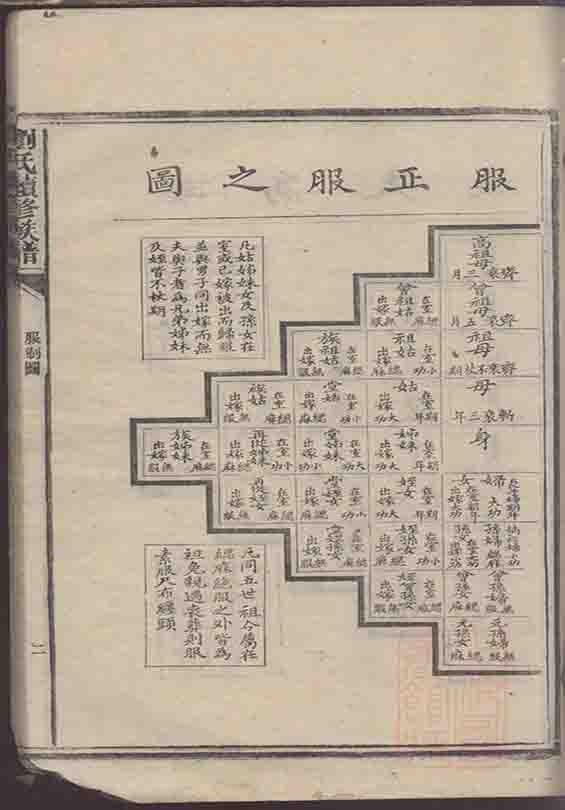 服正服之圖
劉氏續修族譜
服制圖
二
高祖母
齊衰三月
曾祖母
齊衰五月
曾祖姑
在室緦麻
出嫁無服
祖母
齊衰不杖期
祖姑
在室小功
出嫁緦麻
族祖姑
在室緦麻
出嫁無服
母
斬衰三年
姑
在室期年
出嫁大功
堂姑
在室小功
出嫁緦麻
族姑
在室緦麻
出嫁無服
身
姊妹
在室期年
出嫁大功
堂姊妹
在室大功
出嫁小功
再從姊妹
在室小功
出嫁緦麻
族姊妹
在室緦麻
出嫁無服
婦
大功
女
在室期年
出嫁大功
姪女
在室期年
出嫁大功
堂姪女
在室小功
出嫁緦麻
再從姪女
在室緦麻
出嫁無服
孫婦
緦麻
孫女
姪孫女
在室小功
出嫁緦麻
堂孫女
在室緦麻
出嫁無服
曾孫婦
無服
曾孫女
緦麻
曾孫女
在室緦麻
出嫁無服
元孫婦
無服
元孫女
緦麻
凡姑姊妹女及孫女在
室或已嫁被出而歸服
並與男子同出嫁而無
夫與子者為兄弟姊妹
及姪皆不杖期
凡同五世祖今屬在
緦麻絕服之外皆為
袒免親遇喪葬則服
素服尺布纏頭